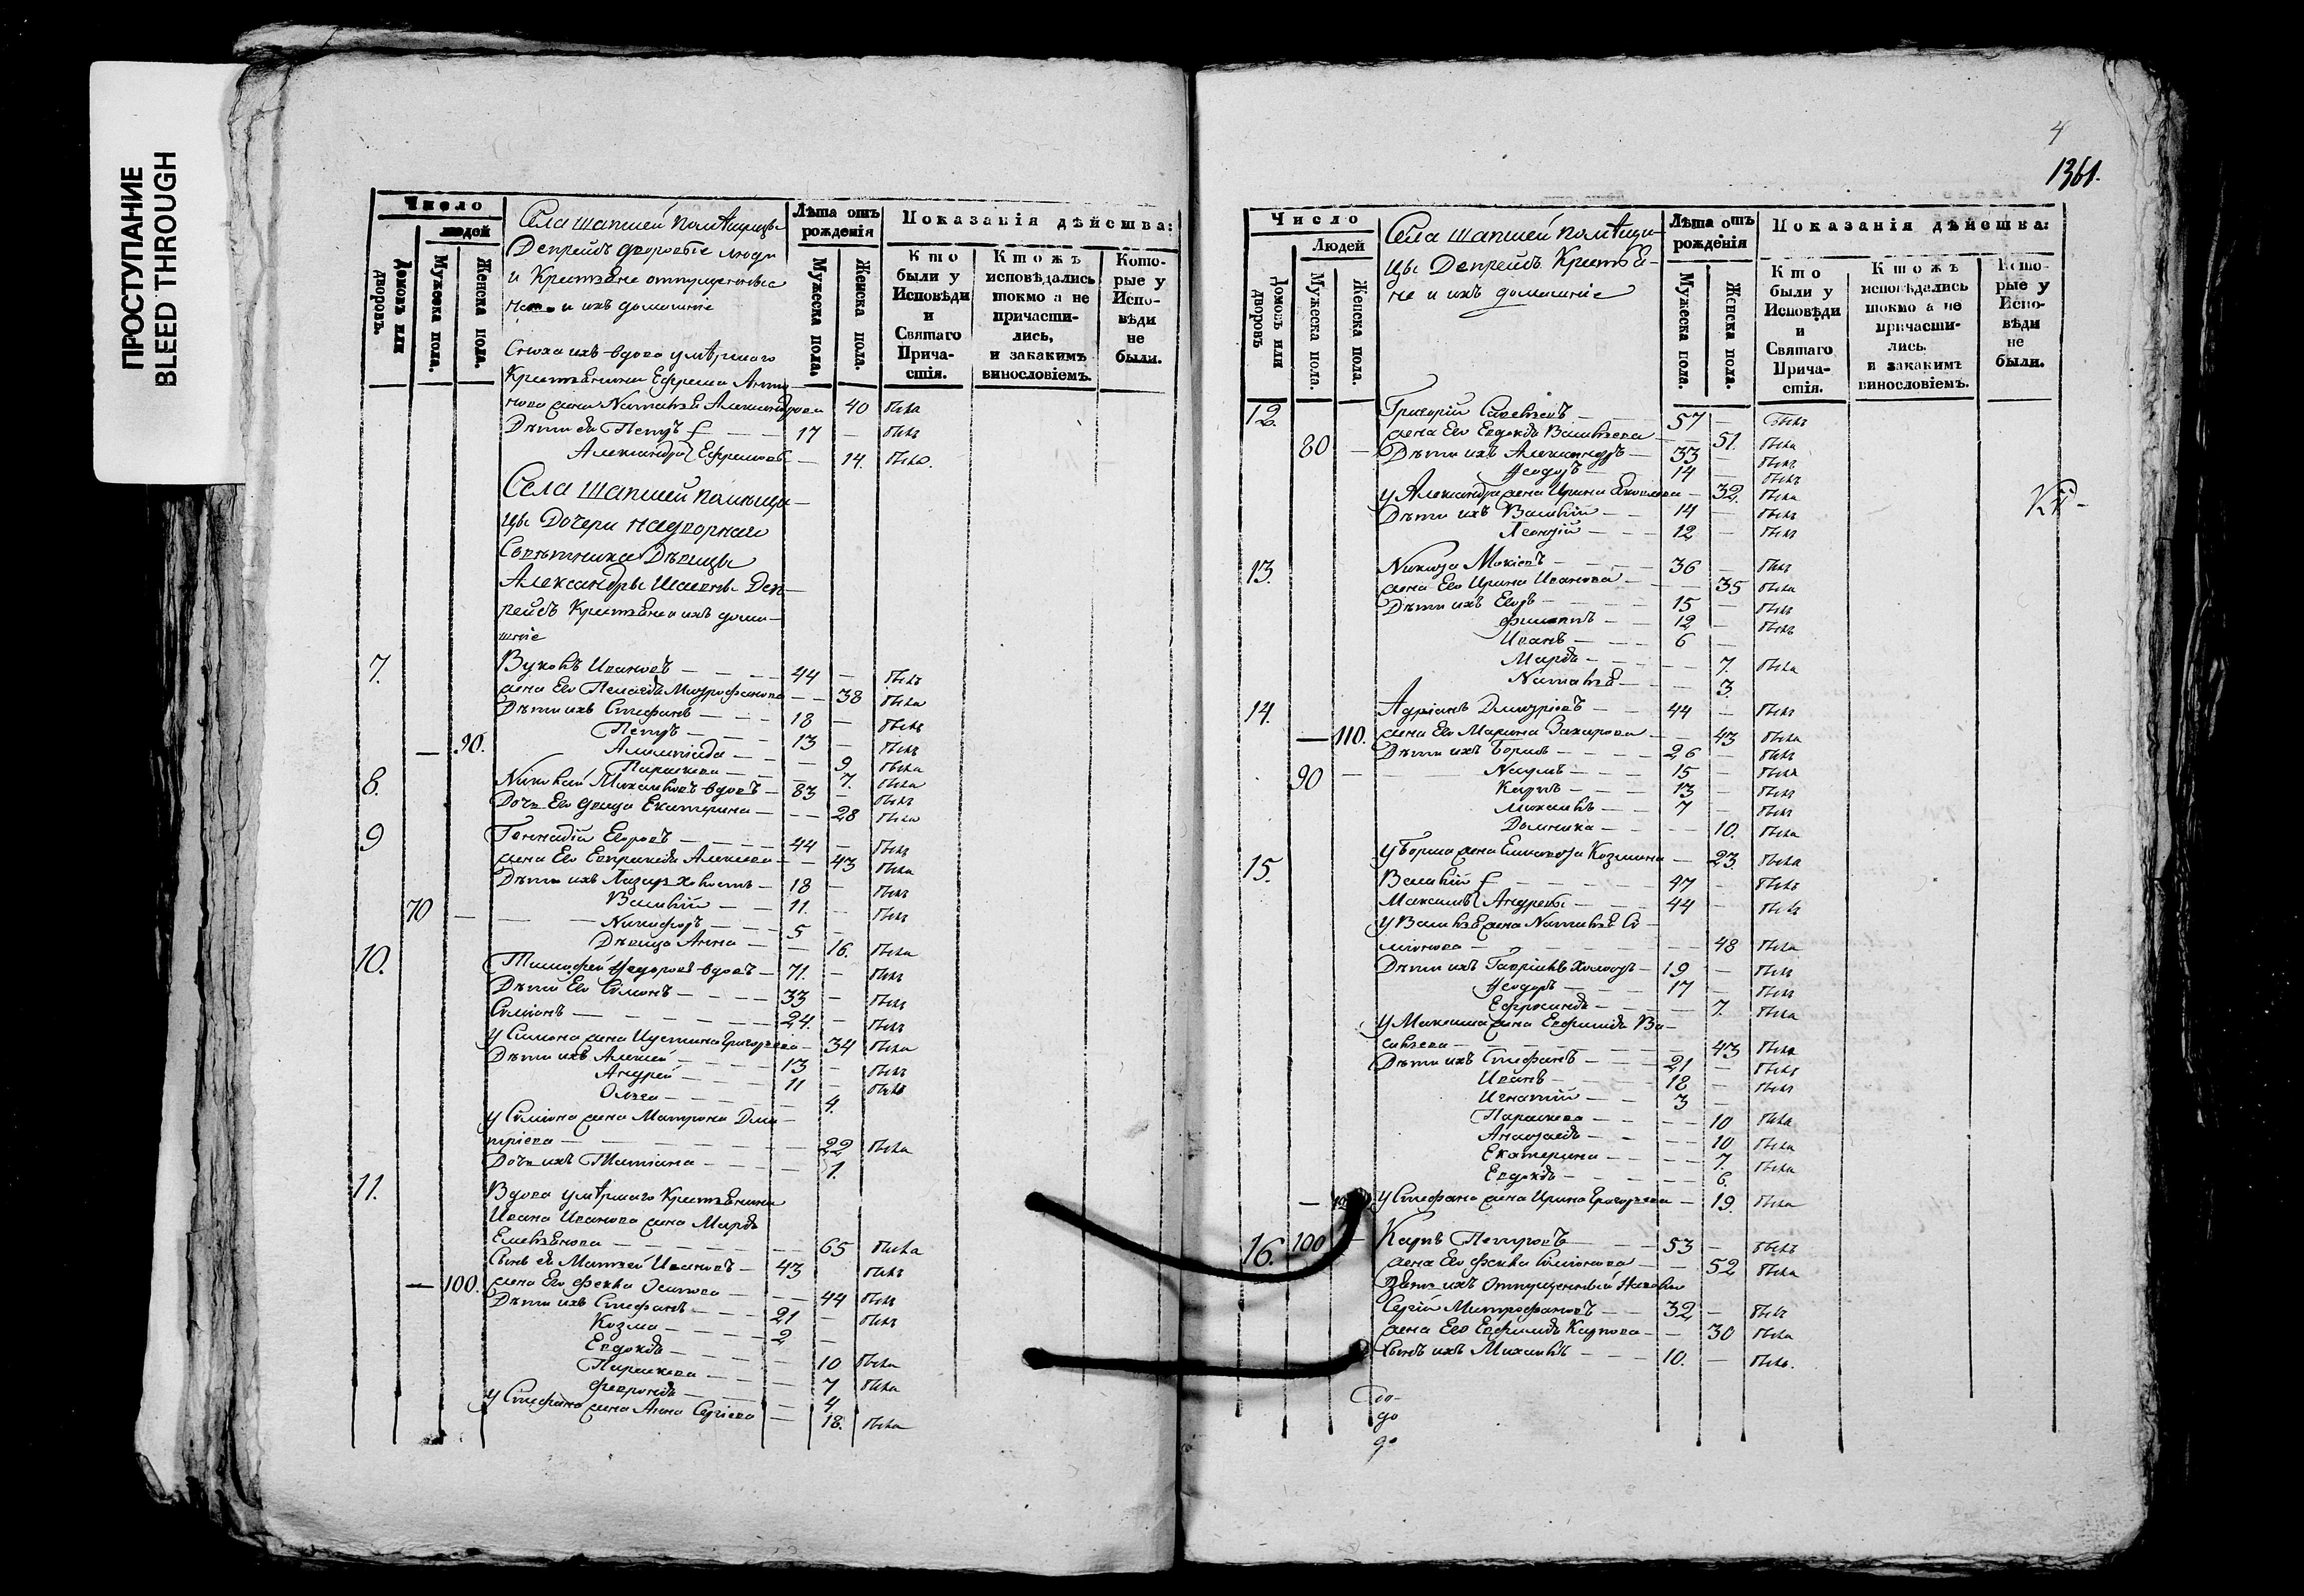 ПРОСТУПАНИЕ
BLEED THROUGH
Число
людей
Домовъ или дворовъ.
Мужеска пола.
Женска пола.
Села Шапшей помѣщицы
Депрейсъ дворовые люди
и Крестьяне отпущенные
и ихъ домашніе
Лѣта отъ рожденія
Мужеска пола.
Женска пола.
Показанія дѣйства:
Кто были у Исповѣди и Святаго Причастія.
Ктожъ исповѣдались токмо а не причастились, и закакимъ винословіемъ.
Которые у Исповѣди не были.
Сноха ихъ вдова умѣршаго
Крестьянина Ефрема Анто-
нова жена Наталья Александрова 40 была
Дѣти ея Петръ 17 — былъ
Александра Ефремовы — 14. была
Села Шапшей помѣщи-
цы Дочери надворнаго
Совѣтника Дѣвицы
Александры Ивановны Деп-
рейсъ Крестьяне и ихъ дома-
шніе
7. Вуколъ Ивановъ — 44 — былъ
жена Его Пелагея Митрофанова — 38 была
Дѣти ихъ Стефанъ — 18 — былъ
Петръ — 13 — былъ
— 90. Алимпіада — 9. была
Параскева — 7. была
8. Николай Михайловъ вдовъ — 83 — былъ
Дочь Его девица Екатерина — 28 была
9 Геннадій Егоровъ — 44 — былъ
жена Его Евпраксія Алексеева — 43 была
Дѣти ихъ Лазарь холостъ — 18 — былъ
Василій — 11. — былъ
70 — Никифоръ — 5 —
Дѣвица Анна — 16. была
10. Тимофей Ѳедоровъ вдовъ — 71. — былъ
Дѣти Его Симонъ — 33 — былъ
Симіонъ — 24. — былъ
у Симона жена Иустина Григорьева — 34 была
Дѣти ихъ Алексей — 13 — былъ
Андрей — 11 — былъ
Ольга — 4.
у Симіона жена Матрона Дми-
тріева — 22 была
Дочь ихъ Татіана — 1.
11. Вдова умѣршаго Крестьянина
Ивана Иванова жена Марѳа
Емельянова — 65 была
Сынъ ея Матвей Ивановъ — 43 былъ
— 100. жена Его Ѳекла Осипова — 44 былъ
Дѣти ихъ Стефанъ — 21 — былъ
Козма — 2 —
Евдокія — 10 была
Параскева — 7 была
Февронія — 4
у Стефана жена Анна Сергіева — 18. была
4
1361.
Число
Людей
Домовъ или дворовъ
Мужеска пола.
Женска пола.
Села Шапшей помѣщи-
цы Депрейсъ Крестья-
не и ихъ домашніе
Лѣта отъ рожденія
Мужеска пола.
Женска пола.
Показанія дѣйства:
Кто были у Исповѣди и Святаго Причастія.
Ктожъ исповѣдались токмо а не причастились. и закакимъ винословіемъ.
Которые у Исповѣди не были.
12. Григорій Савельевъ — 57 — былъ
80 — жена Его Евдокія Васильева — 51. была
Дѣти ихъ Александръ — 33 — былъ
Ѳеодоръ — 14 — былъ
у Александра жена Ирина — 32. была
Дѣти ихъ Василій — 14 — былъ
Леонтій — 12 — былъ
13. Никита Мокіевъ — 36 — былъ
жена Его Ирина Иванова — 35 была
Дѣти ихъ Егоръ — 15 — былъ
Филиппъ — 12 — былъ
Иванъ — 6 —
Марѳа — 7. была
Наталья — 3.
14. Адріанъ Дмитріевъ — 44 — былъ
— 110. жена Его Марина Захарова — 43 была
Дѣти ихъ Борисъ — 26 — былъ
90 — Наумъ — 15 — былъ
Карпъ — 13 — былъ
Михаилъ — 7 — былъ
Домника — 10. была
у Бориса жена Елисавета Козмина — 23. была
15. Василій — 47 — былъ
Максимъ Андреевы — 44 — былъ
у Василья жена Наталья Си-
міонова — 48 была
Дѣти ихъ Гавріилъ холостъ — 19 — былъ
Ѳеодоръ — 17 — былъ
Ефросинія — 7. была
у Максима жена Евфимія Ва-
сильева — 43 была
Дѣти ихъ Стефанъ — 21 — былъ
Иванъ — 18 — былъ
Игнатій — 3 —
Параскева — 10 была
Анастасія — 10 была
Екатерина — 7. была
Евдокія — 6.
— у Стефана жена Ирина Григорьева — 19. была
16. 100 — Карпъ Петровъ — 53 — былъ
жена Его Ѳекла Симіонова — 52 была
Зять ихъ отпущенный
Сергій Митрофановъ — 32 — былъ
жена Его Евфимія Карпова — 30 была
Сынъ ихъ Михаилъ — 10. — былъ.
до
до